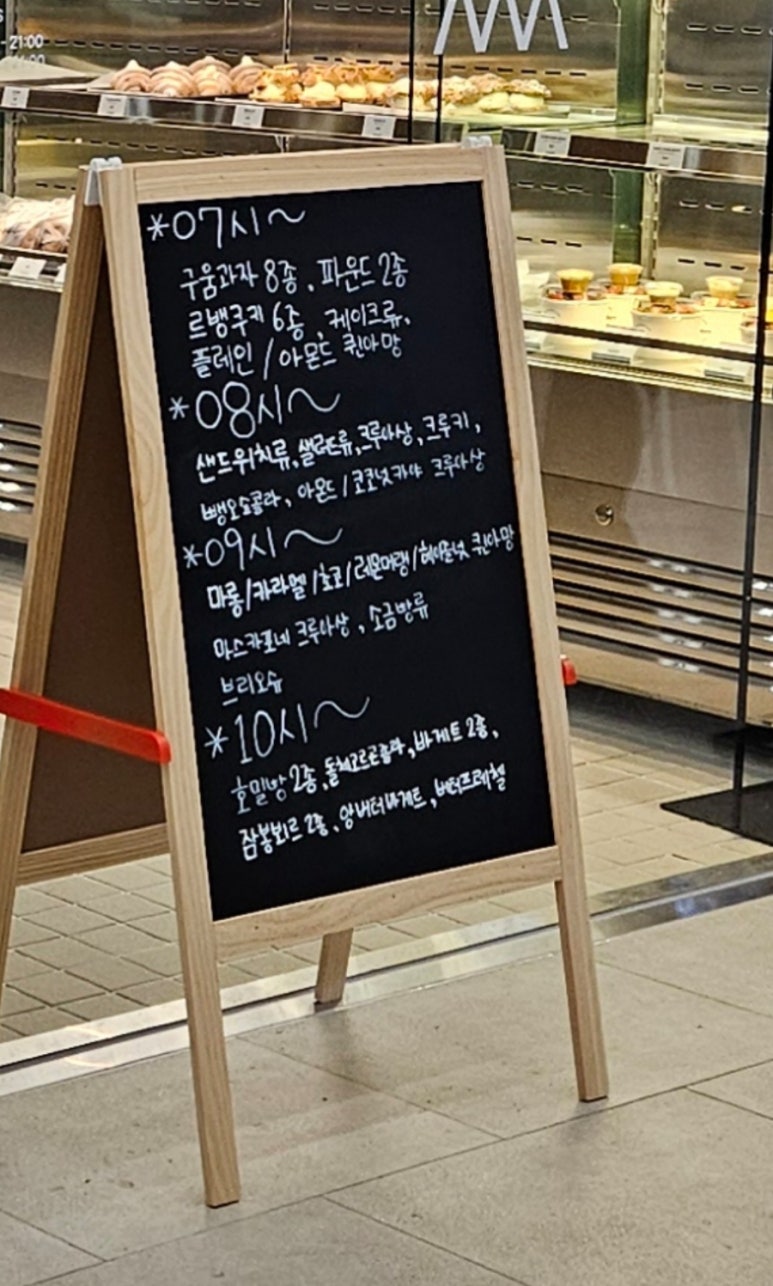 - 21:00
*07시~
구움과자 8종, 파운드 2종
르뱅쿠키 6종, 케이크류,
플레인/아몬드 퀸아망
*08시~
샌드위치류, 샐러드류, 크루아상, 크루키,
뺑오쇼콜라, 아몬드/코코넛카야 크루아상
*09시~
마롱/카라멜/초코/레몬머랭/헤이즐넛 퀸아망
마스카포네 크루아상, 소금빵류
브리오슈
*10시~
호밀빵 2종, 돌체고르곤졸라, 바게트 2종,
잠봉뵈르 2종, 앙버터바게트, 버터프레첼